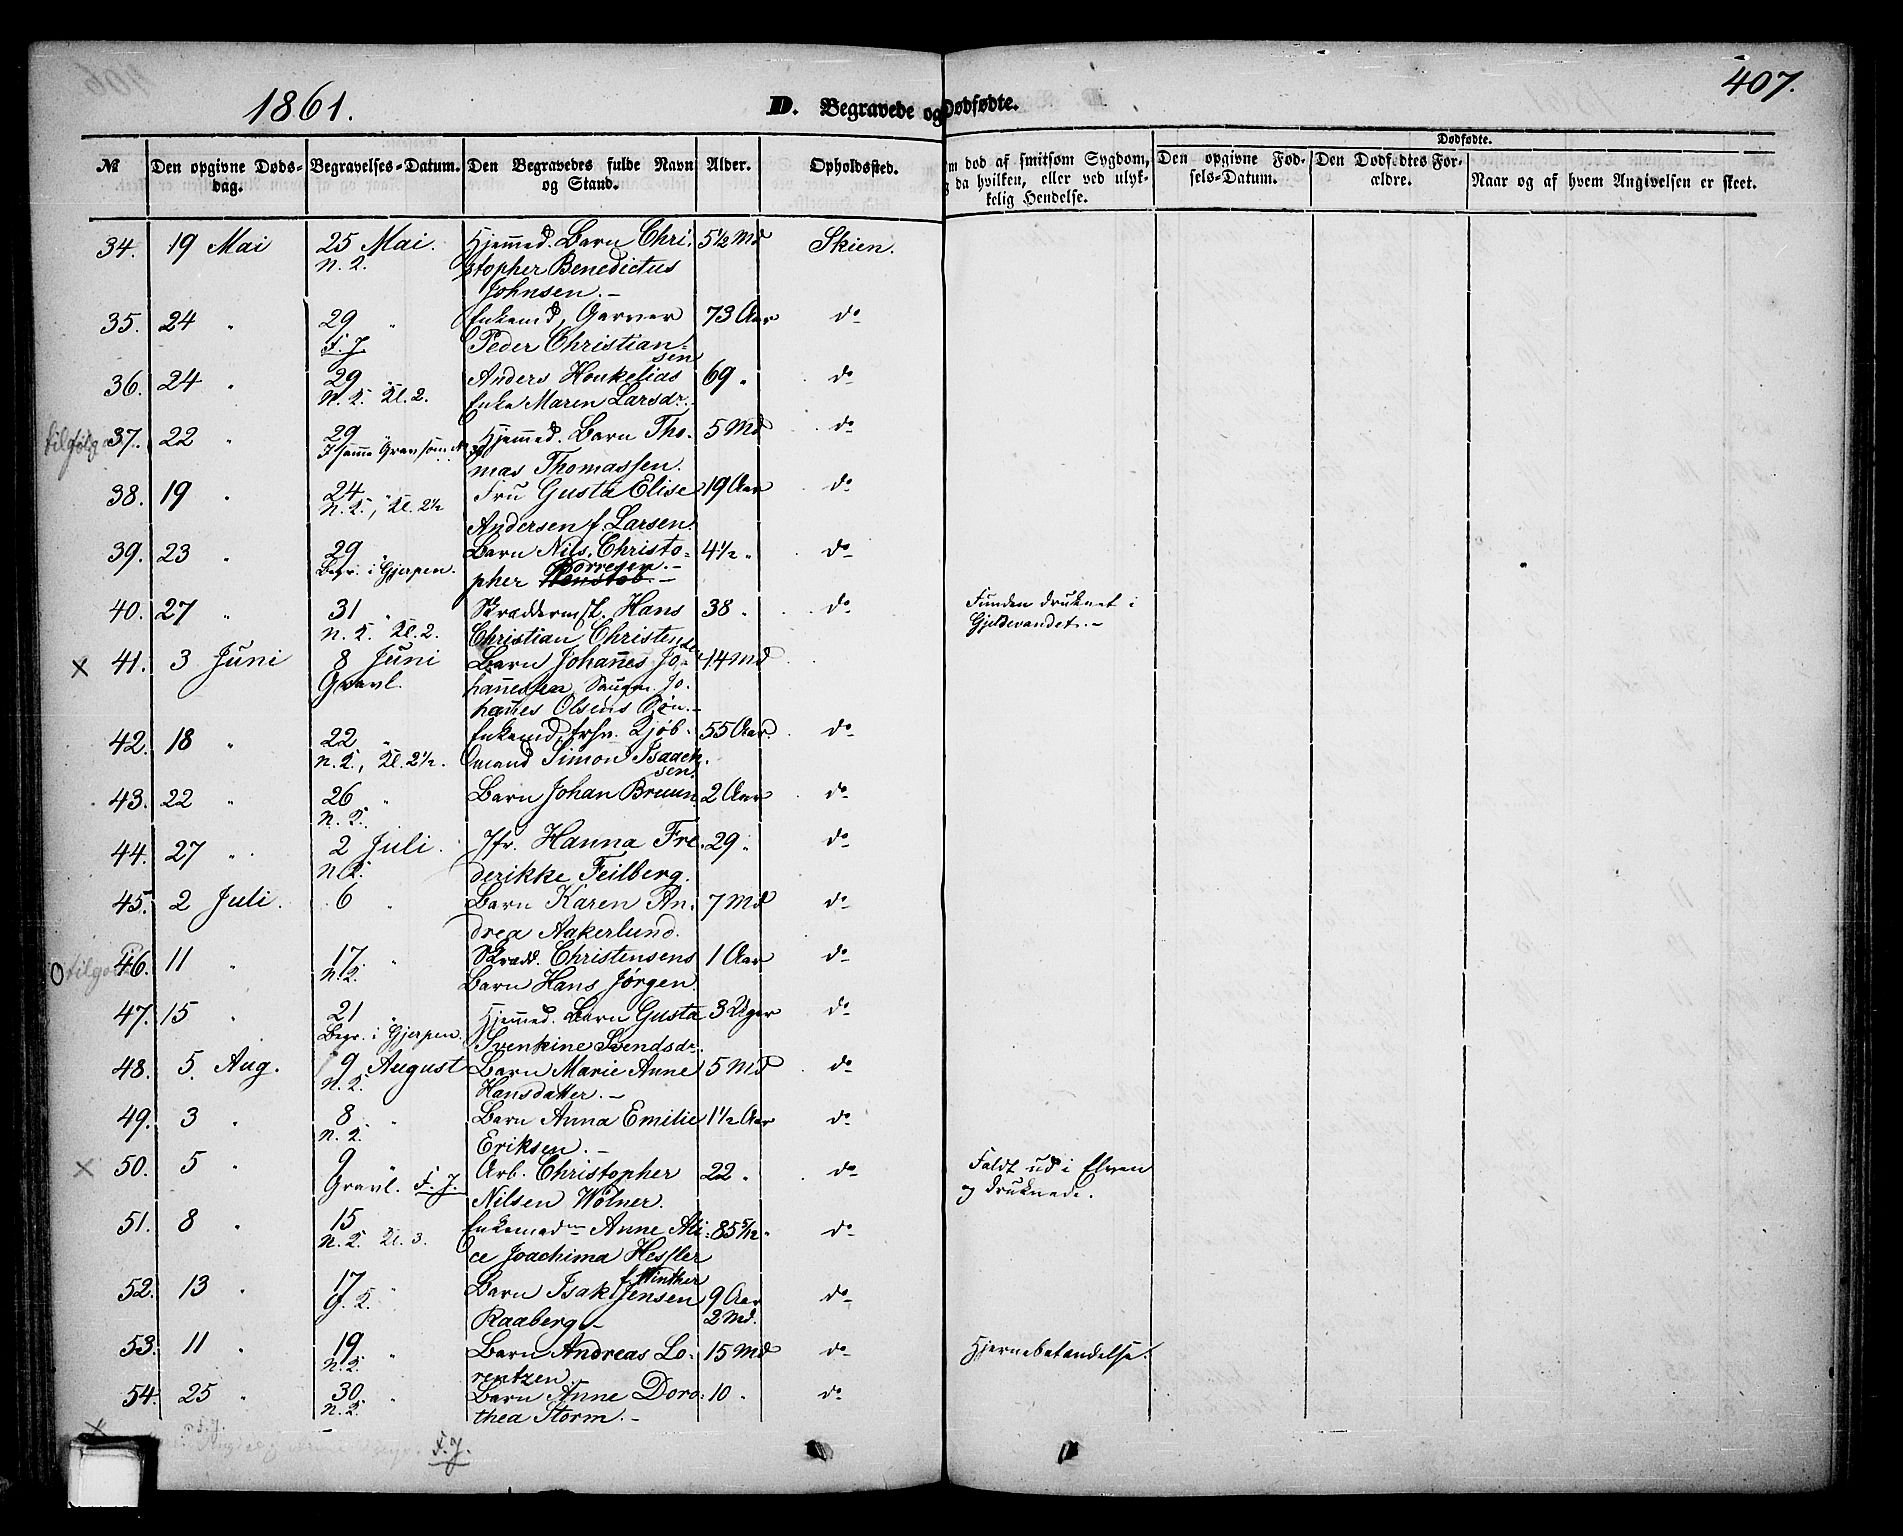 407.
1861.
D. Begravede og Dødfødte.
Dødfødte.
№ Den opgivne Døds-dag. Begravelses-Datum. Den Begravedes fulde Navn og Stand. Alder. Opholdssted. Om død af smitsom Sygdom, og da hvilken, eller ved ulyk-kelig Hendelse. Den opgivne Fød-sels-Datum. Den Dødfødtes For-ældre. Naar og af hvem Angivelsen er skeet.
34. 19 Mai 25 Mai. Hjemmed. Barn Chri- 5½ Md Skien.
n. K. stopher Benedictus
Johnsen. —
35. 24 " 29 " Enkemd, Garver 73 Aar do
F. J. Peder Christian-
sen
36. 24 " 29 " Anders Houkelias 69 " do
N. K. Kl. 2. Enke Maren Larsdr.
37. 22 " 29 " Hjemmed. Barn Tho- 5 Md do
I samme Grav som
mas Thomassen.
38. 19 " 24 " Fru Gusta Elise 19 Aar do
N. K., Kl. 2½
Andersen f. Larsen.
39. 23 " 29 " Barn Nils Christo- 4½ " do
Begr. i Gjerpen. Borresen. —
pher Henstob. —
40. 27 " 31 " Skræddermst. Hans 38 " do Funden druknet i
n. K. Kl. 2. Christian Christens Gjeldevandet. —
× 41. 3 Juni 8 Juni Barn Johannes Jo- 14 Md
Gravl. hannessen,
Jo-
hannes Olsens Søn. —
42. 18 " 22 " Enkemd, Kjøb- 55 Aar. do
n. K., Kl. 2½. mand Simon Isaack
sen.
43. 22 " 26 " Barn Johan Bruun 2 Aar do
n. K.
44. 27 " 2 Juli. Jfr. Hanna Fre- 29 " do
n K. derikke Feilberg.
45. 2 Juli. 6 " Barn Karen An- 7 Md do
drea Aakerlund.
46. 11 " 17. " Skrædd. Christensens 1 Aar do
n. K. Barn Hans Jørgen.
47. 15 " 21 " Hjemmed. Barn Gusta 3 Uger do
Begr. i Gjerpen. Svenkine Svendsdr.
48. 5. Aug. 9 August Barn Marie Anne 5 Md do
n. K. Hansdatter. —
49. 3 " 8 " Barn Anna Emilie 1½ Aar do
n. K. Eriksen. —
× 50. 5 " 9 " Arb. Christopher 22 " do Faldt ud i Elven
Gravl. F. J. Nilsen Wölner. og druknede.
51. 8 " 15 " Enkemadm Anne Ali- 85 5/12 " do
n. K. Kl. 3. ce Joachima Hessler
f. Winther
52. 13 " 17 " Barn Isak Jensen 9 Aar do
G. K. Raaberg — 2 Md.
53. 11 " 19 " Barn Andreas Lo- 15 Md do Hjernebetændelse.
n. K. rentzen.
54. 25 " 30 " Barn Anne Doro- 10 " do
n. K. thea Storm. —
× F. J.